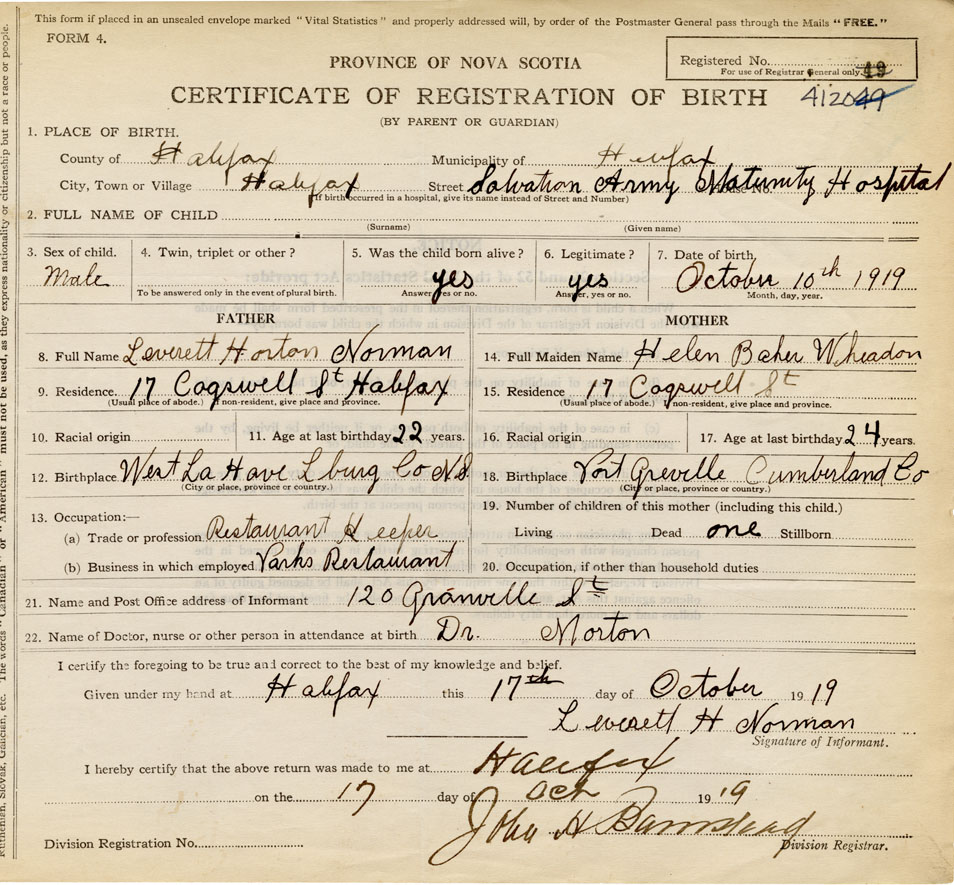 This form if placed in an unsealed envelope marked "Vital Statistics" and properly addressed will, by order of the Postmaster General pass through the Mails "FREE."
FORM 4.
Registered No. 49
For use of Registrar General only.
PROVINCE OF NOVA SCOTIA
CERTIFICATE OF REGISTRATION OF BIRTH 412049
(BY PARENT OR GUARDIAN)
1. PLACE OF BIRTH.
County of Halifax Municipality of Halifax
City, Town or Village Halifax Street Salvation Army Maternity Hospital
(If birth occurred in a hospital, give its name instead of Street and Number)
2. FULL NAME OF CHILD
(Surname) (Given name)
3. Sex of child. 4. Twin, triplet or other? 5. Was the child born alive? 6. Legitimate? 7. Date of birth
Male yes yes October 10th 1919
To be answered only in the event of plural birth. Answer, yes or no. Answer, yes or no. Month, day, year.
FATHER MOTHER
8. Full Name Leverett Horton Norman 14. Full Maiden Name Helen Baker Wheadon
9. Residence. 17 Cogswell St Halifax 15. Residence. 17 Cogswell St
(Usual place of abode.) If non-resident, give place and province. (Usual place of abode.) If non-resident, give place and province.
10. Racial origin 11. Age at last birthday 22 years. 16. Racial origin 17. Age at last birthday 24 years.
12. Birthplace West La Have Lburg Co N.S. 18. Birthplace Port Greville Cumberland Co
(City or place, province or country.) (City or place, province or country.)
13. Occupation:— 19. Number of children of this mother (including this child.)
(a) Trade or profession Restaurant Keeper Living Dead one Stillborn
(b) Business in which employed Parks Restaurant 20. Occupation, if other than household duties
21. Name and Post Office address of Informant 120 Granville St
22. Name of Doctor, nurse or other person in attendance at birth Dr. Morton
I certify the foregoing to be true and correct to the best of my knowledge and belief.
Given under my hand at Halifax this 17th day of October 1919
Leverett H Norman
Signature of Informant.
I hereby certify that the above return was made to me at Halifax
on the 17 day of Oct 1919
John H Barnstead
Division Registration No. Division Registrar.
Ruthenian, Slovak, Galician, etc. The words "Canadian" or "American" must not be used, as they express nationality or citizenship but not a race or people.